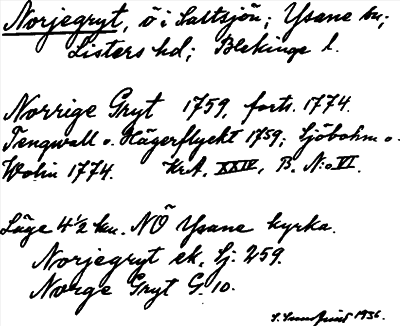 Norjegryt, ö i Saltsjön; Ysane sn;
Listers hd; Blekinge l.
Norrige Gryt 1759, forts. 1774.
Tengwall o. Hägerflycht 1759; Sjöbohm o.
Wolin 1774. KrA, XXIV, B. N:o VI.
Läge 4 1/2 km. NÖ Ysane kyrka.
Norjegryt ek. Sj. 259.
Norge Gryt G. 10.
1936.